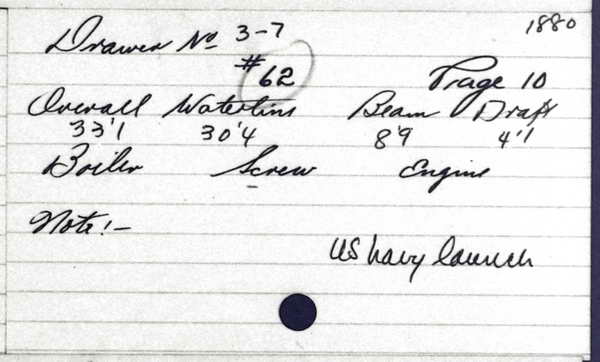 1880
Drawer No 3-7
#62
Page 10
Overall Waterline Beam Draft
33'1 30'4 8'9 4'1
Boiler Screw Engine
Note:-
US Navy launch